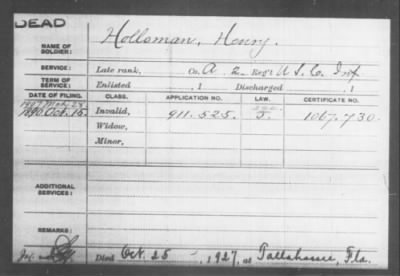 DEAD
NAME OF SOLDIER: Holloman, Henry.
SERVICE: Late rank, Co. A, 2 Reg't U S. Co. Inf
TERM OF SERVICE: Enlisted , 1 Discharged , 1
DATE OF FILING. CLASS. APPLICATION NO. LAW. CERTIFICATE NO.
1897 Mch 23
1890 Oct. 15 Invalid, 911.525. 5. 1067.730.
Widow,
Minor,
ADDITIONAL SERVICES:
REMARKS:
Died Oct. 25 , 1927, at Tallahassee, Fla.